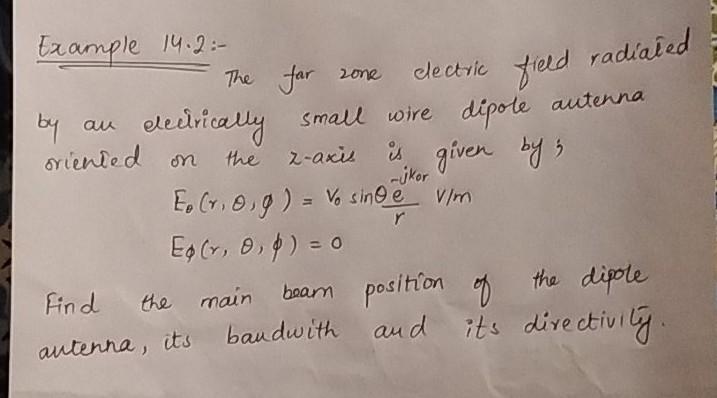 Example 14.2:-
The far zone electric field radiated
by an electrically small wire dipole antenna
oriented on the z-axis is given by ;
E₀(r, θ, φ) = V₀ sinθ e^-jk₀r / r V/m
Eφ(r, θ, φ) = 0
Find the main beam position of the dipole
antenna, its bandwith and its directivity.